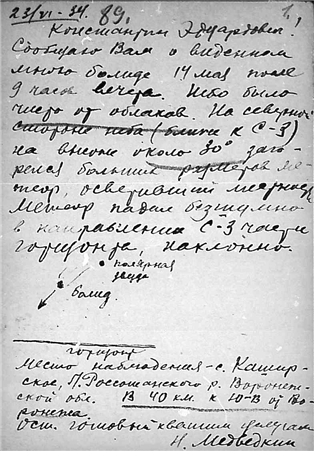 23/VI-34. 89. 1.
Константин Эдуардович.
Сообщаю Вам о виденном
мною болиде 14 мая после
9 часов вечера. Небо было
чисто от облаков. На северной
стороне неба (ближе к С-З)
на высоте около 30° заго-
релся больших размеров ме-
теор, осветивший местность.
Метеор падал бесшумно
в направлении С-З части
горизонта, наклонно.
полярная
звезда
болид.
горизонт
Место наблюдения - с. Кашир-
ское, П. Россошанского р. Воронеж-
ской обл. В 40 км. к Ю-В от Во-
ронежа.
Ост. готовый к вашим услугам
Н. Медведкин